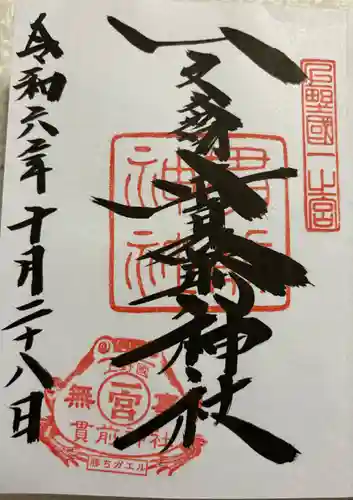 上野國一之宮
一之宮貫前神社
貫前神社
令和六年十月二十八日
一宮
無事
貫前神社
勝ちガエル